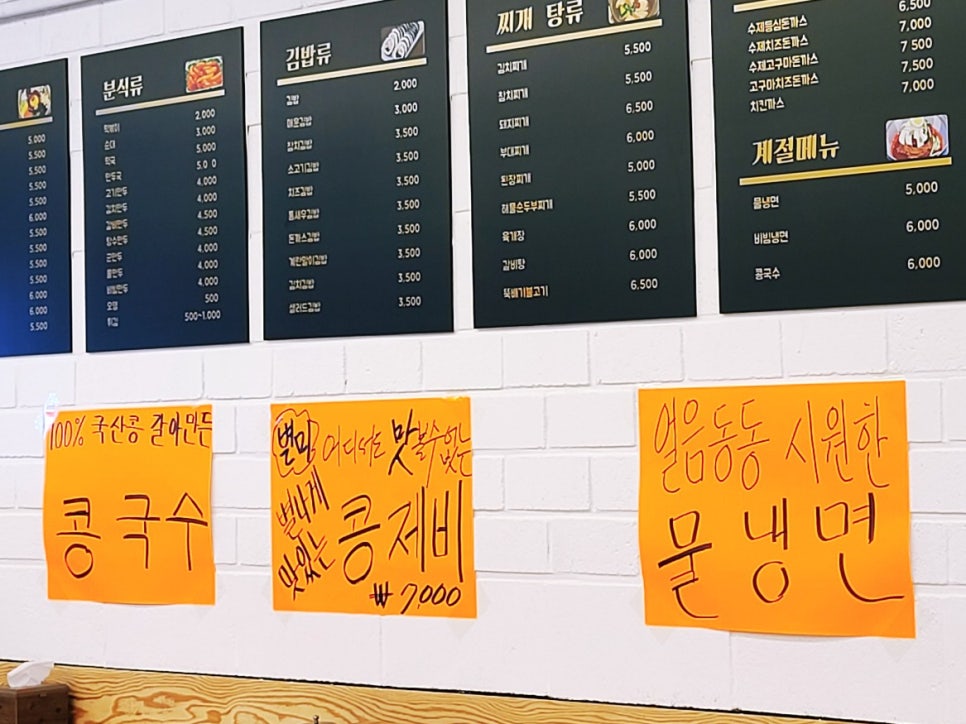 5.000
5.500
5.500
5.500
5.500
6.000
5.500
5.500
5.500
5.500
6.000
6.000
5.500
분식류
떡볶이 2.000
순대 3.000
떡국 5.000
만두국 5.0 0
고기만두 4.000
김치만두 4.000
갈비만두 4.500
탕수만두 4.500
군만두 4.000
물만두 4.000
비빔만두 4.000
오뎅 500
튀김 500~1.000
김밥류
김밥 2.000
야채김밥 3.000
참치김밥 3.500
소고기김밥 3.500
치즈김밥 3.500
통새우김밥 3.500
돈까스김밥 3.500
계란말이김밥 3.500
김치김밥 3.500
샐러드김밥 3.500
찌개 탕류
김치찌개 5,500
참치찌개 5,500
돼지찌개 6,500
부대찌개 6,000
된장찌개 5,000
해물순두부찌개 5,500
육개장 6,000
갈비탕 6,000
뚝배기불고기 6,500
6.500
수제등심돈까스 7,000
수제치즈돈까스 7 500
수제고구마돈까스 7,500
고구마치즈돈까스 7,000
치킨까스
계절메뉴
물냉면 5,000
비빔냉면 6,000
콩국수 6,000
100% 국산콩 갈아만든
콩국수
별미 어디서도 맛볼수없는
별나게
맛있는
콩제비
₩ 7,000
얼음동동 시원한
물냉면